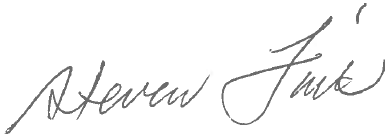 Steven Fink